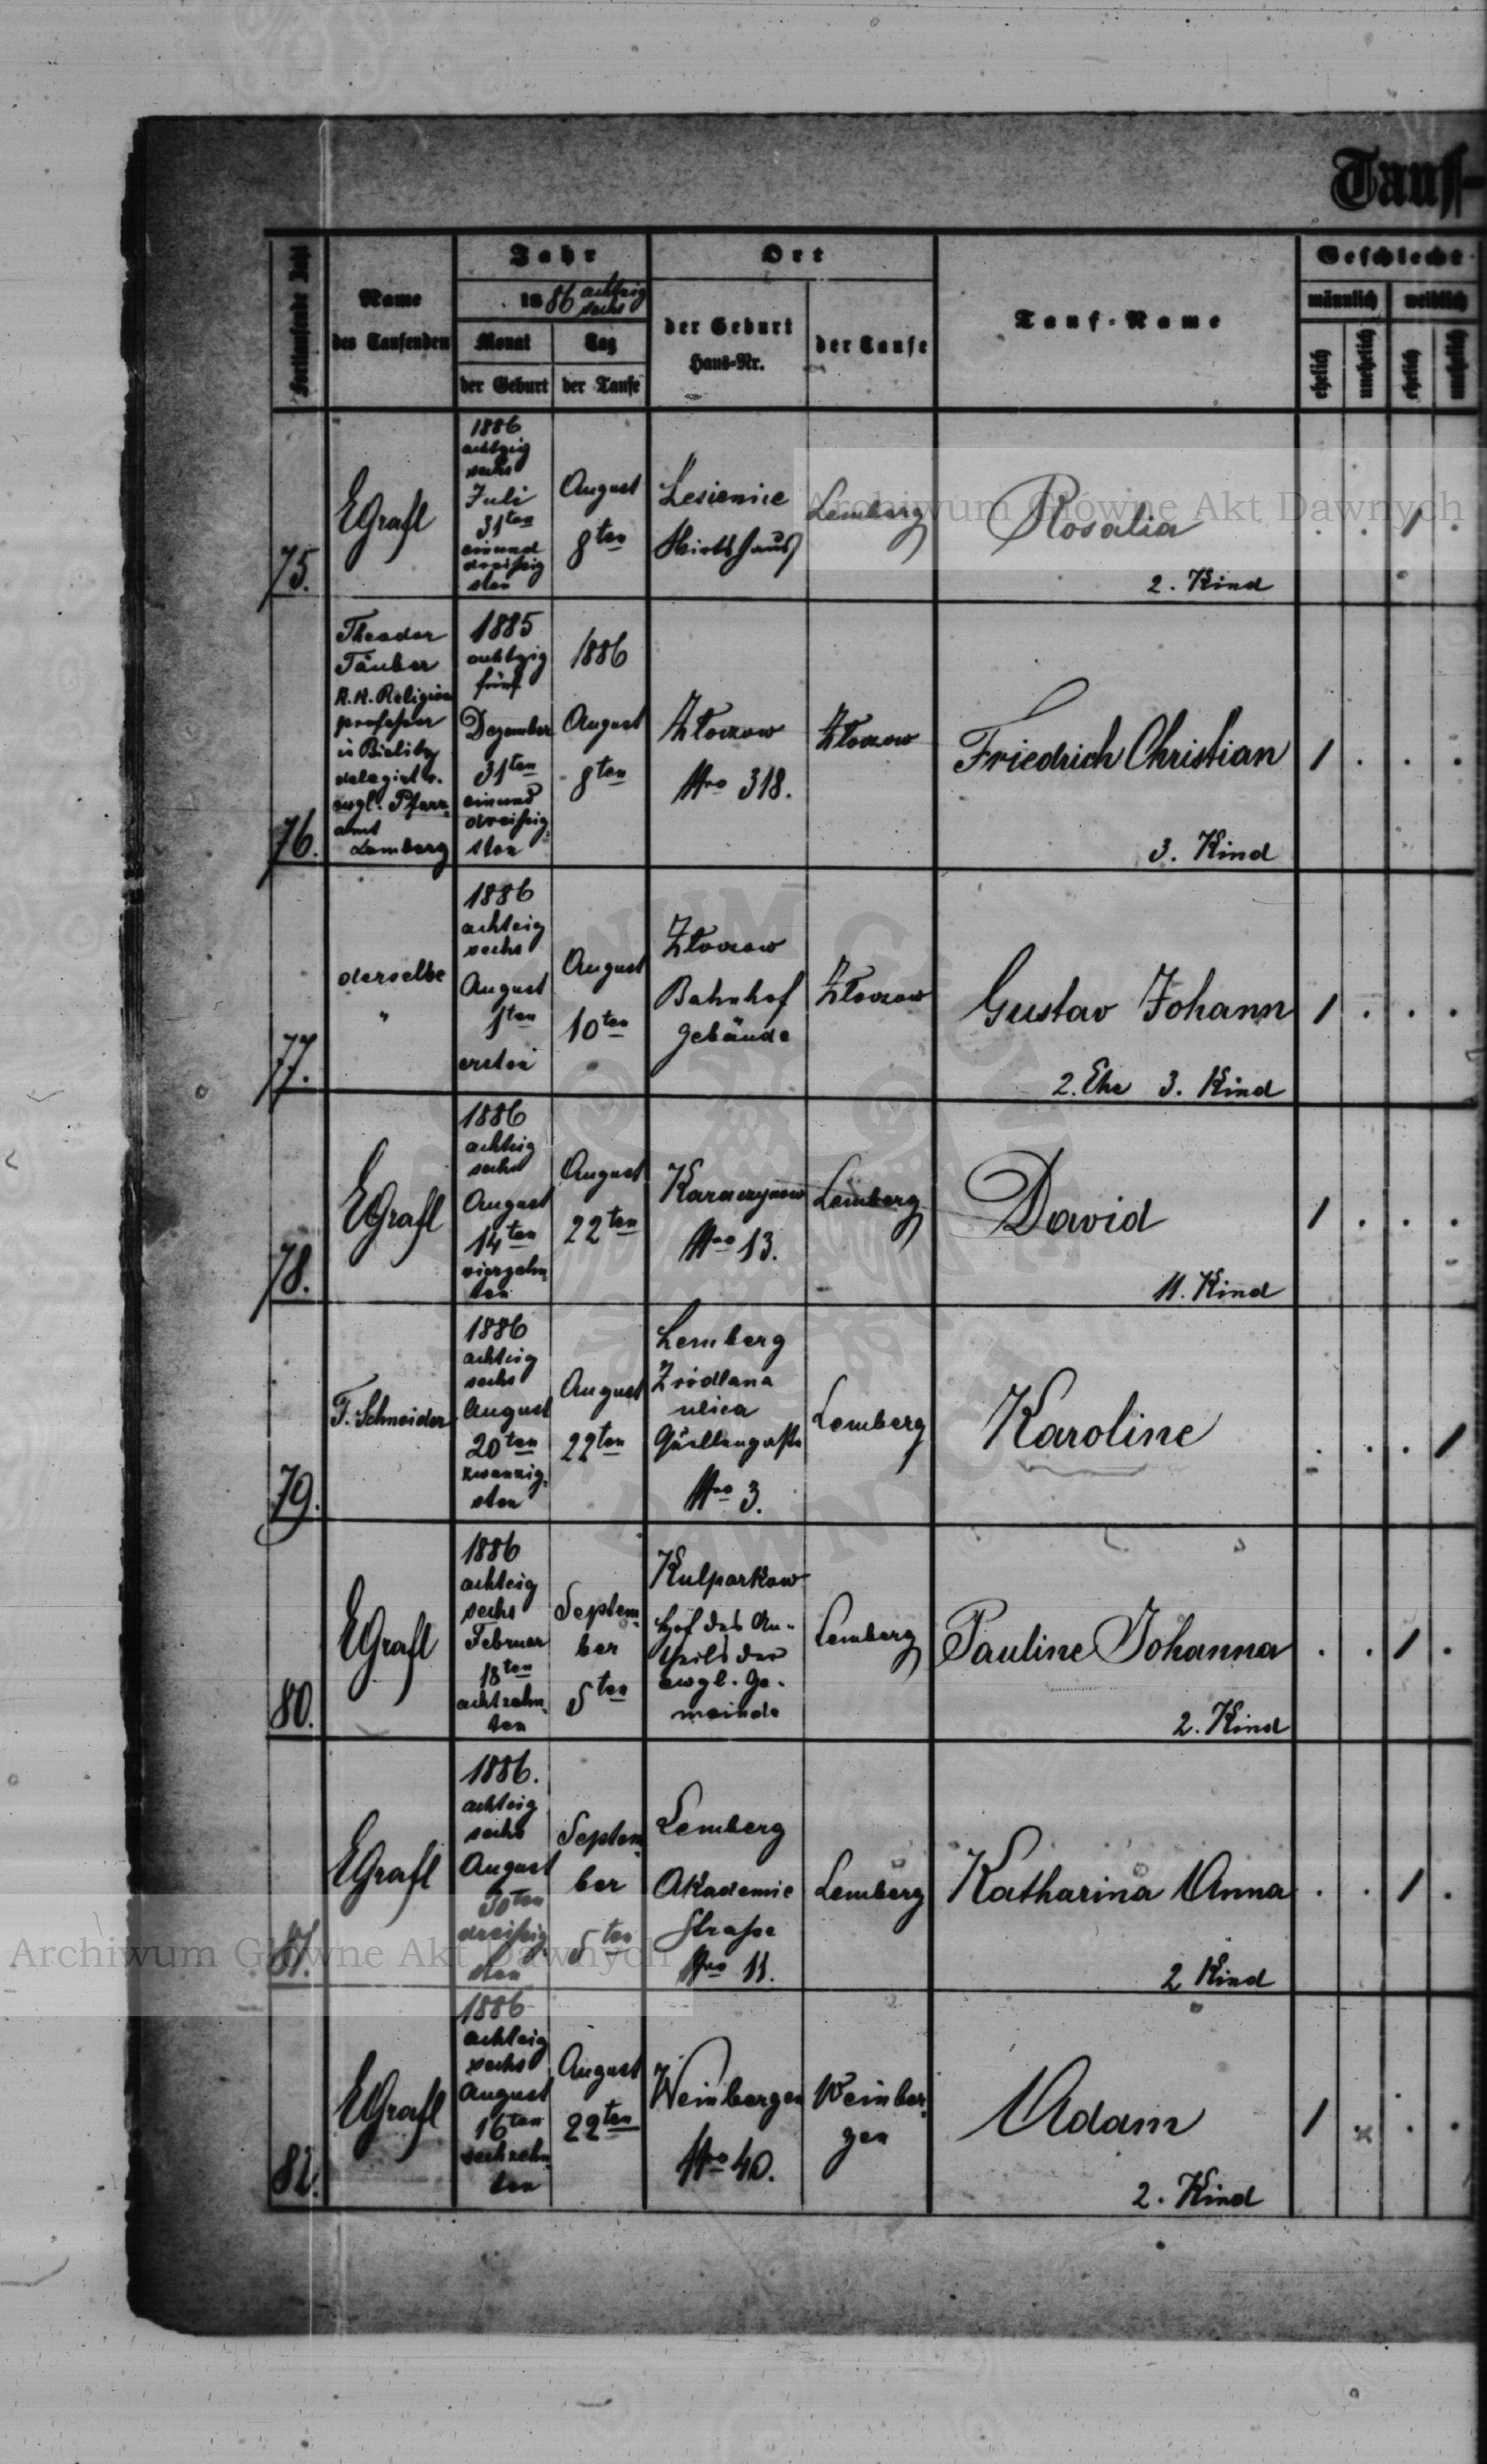 Tauf-
Fortlaufende Zahl
Name
des Taufenden
Jahr
1886 achtzig
sechs
Monat
Tag
der Geburt
der Taufe
Ort
der Geburt
Haus-Nr.
der Taufe
Tauf-Name
Geschlecht
männlich
weiblich
ehelich
unehelich
ehelich
unehelich
75.
EGrafl
1886
achtzig
sechs
Juli
31ten
einund
dreißig
sten
August
8ten
Lesienice
Wirtshaus
Lemberg
Rosalia
2. Kind
. . 1 .
76.
Theodor
Täuber
K.K. Religions
professor
in Bielitz
delegirt v.
evgl. Pfarr-
amt
Lemberg
1885
achtzig
fünf
Dezember
31ten
einund
dreißig-
sten
1886
August
8ten
Złoczow
Nro 318.
Złoczow
Friedrich Christian
3. Kind
1 . . .
77.
derselbe
"
1886
achtzig
sechs
August
1ten
ersten
August
10ten
Złoczow
Bahnhof
gebäude
Złoczow
Gustav Johann
2. Ehe 3. Kind
1 . . .
78.
EGrafl
1886
achtzig
sechs
August
14ten
vierzehn-
ten
August
22ten
Karaczynow
Nro 13.
Lemberg
David
11. Kind
1 . . .
79.
F. Schneider
1886
achtzig
sechs
August
20ten
zwanzig-
sten
August
22ten
Lemberg
Źródlana
ulica
Quellengasse
Nro 3.
Lemberg
Karoline
. . . 1
80.
EGrafl
1886
achtzig
sechs
Februar
18ten
achtzehn-
ten
Septem-
ber
5ten
Kulparkow
Hof des An-
theils der
evgl. Ge-
meinde
Lemberg
Pauline Johanna
2. Kind
. . 1 .
81.
EGrafl
1886.
achtzig
sechs
August
30ten
dreißig-
sten
Septem-
ber
5ten
Lemberg
Akademie
Straße
Nro 11.
Lemberg
Katharina Anna
2 Kind
. . 1 .
82.
EGrafl
1886
achtzig
sechs
August
16ten
sechzehn-
ten
August
22ten
Weinbergen
Nro 40.
Weinber-
gen
Adam
2. Kind
1 x . .
Archiwum Główne Akt Dawnych
Archiwum Główne Akt Dawnych